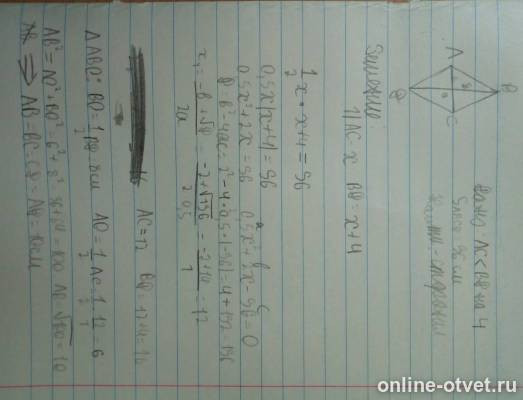 A
B
C
O
Дано: AC < BD на 4
S = 96 см
Найти
Решение
1) AC - x BD = x+4
1/2 x • x+4 = 96
0,5x(x+4) = 96
0,5x²+2x = 96 0,5x²+2x-96=0
a b c
D = b²-4ac = 2²-4•0,5•(-96) = 4+192 = 196
x₁ = -b+√D / 2a = -2+√196 / 2•0,5 = -2+14 / 1 = 12
AC = 12 BD = 12+4 = 16
Δ ABO: BO = 1/2 BD = 8см AO = 1/2 AC = 1/2 • 12 = 6
AB² = AO²+BO² = 6²+8² = 36+64 = 100 AB = √100 = 10
AB = BC = CD = AD = 10см
online-otvet.ru